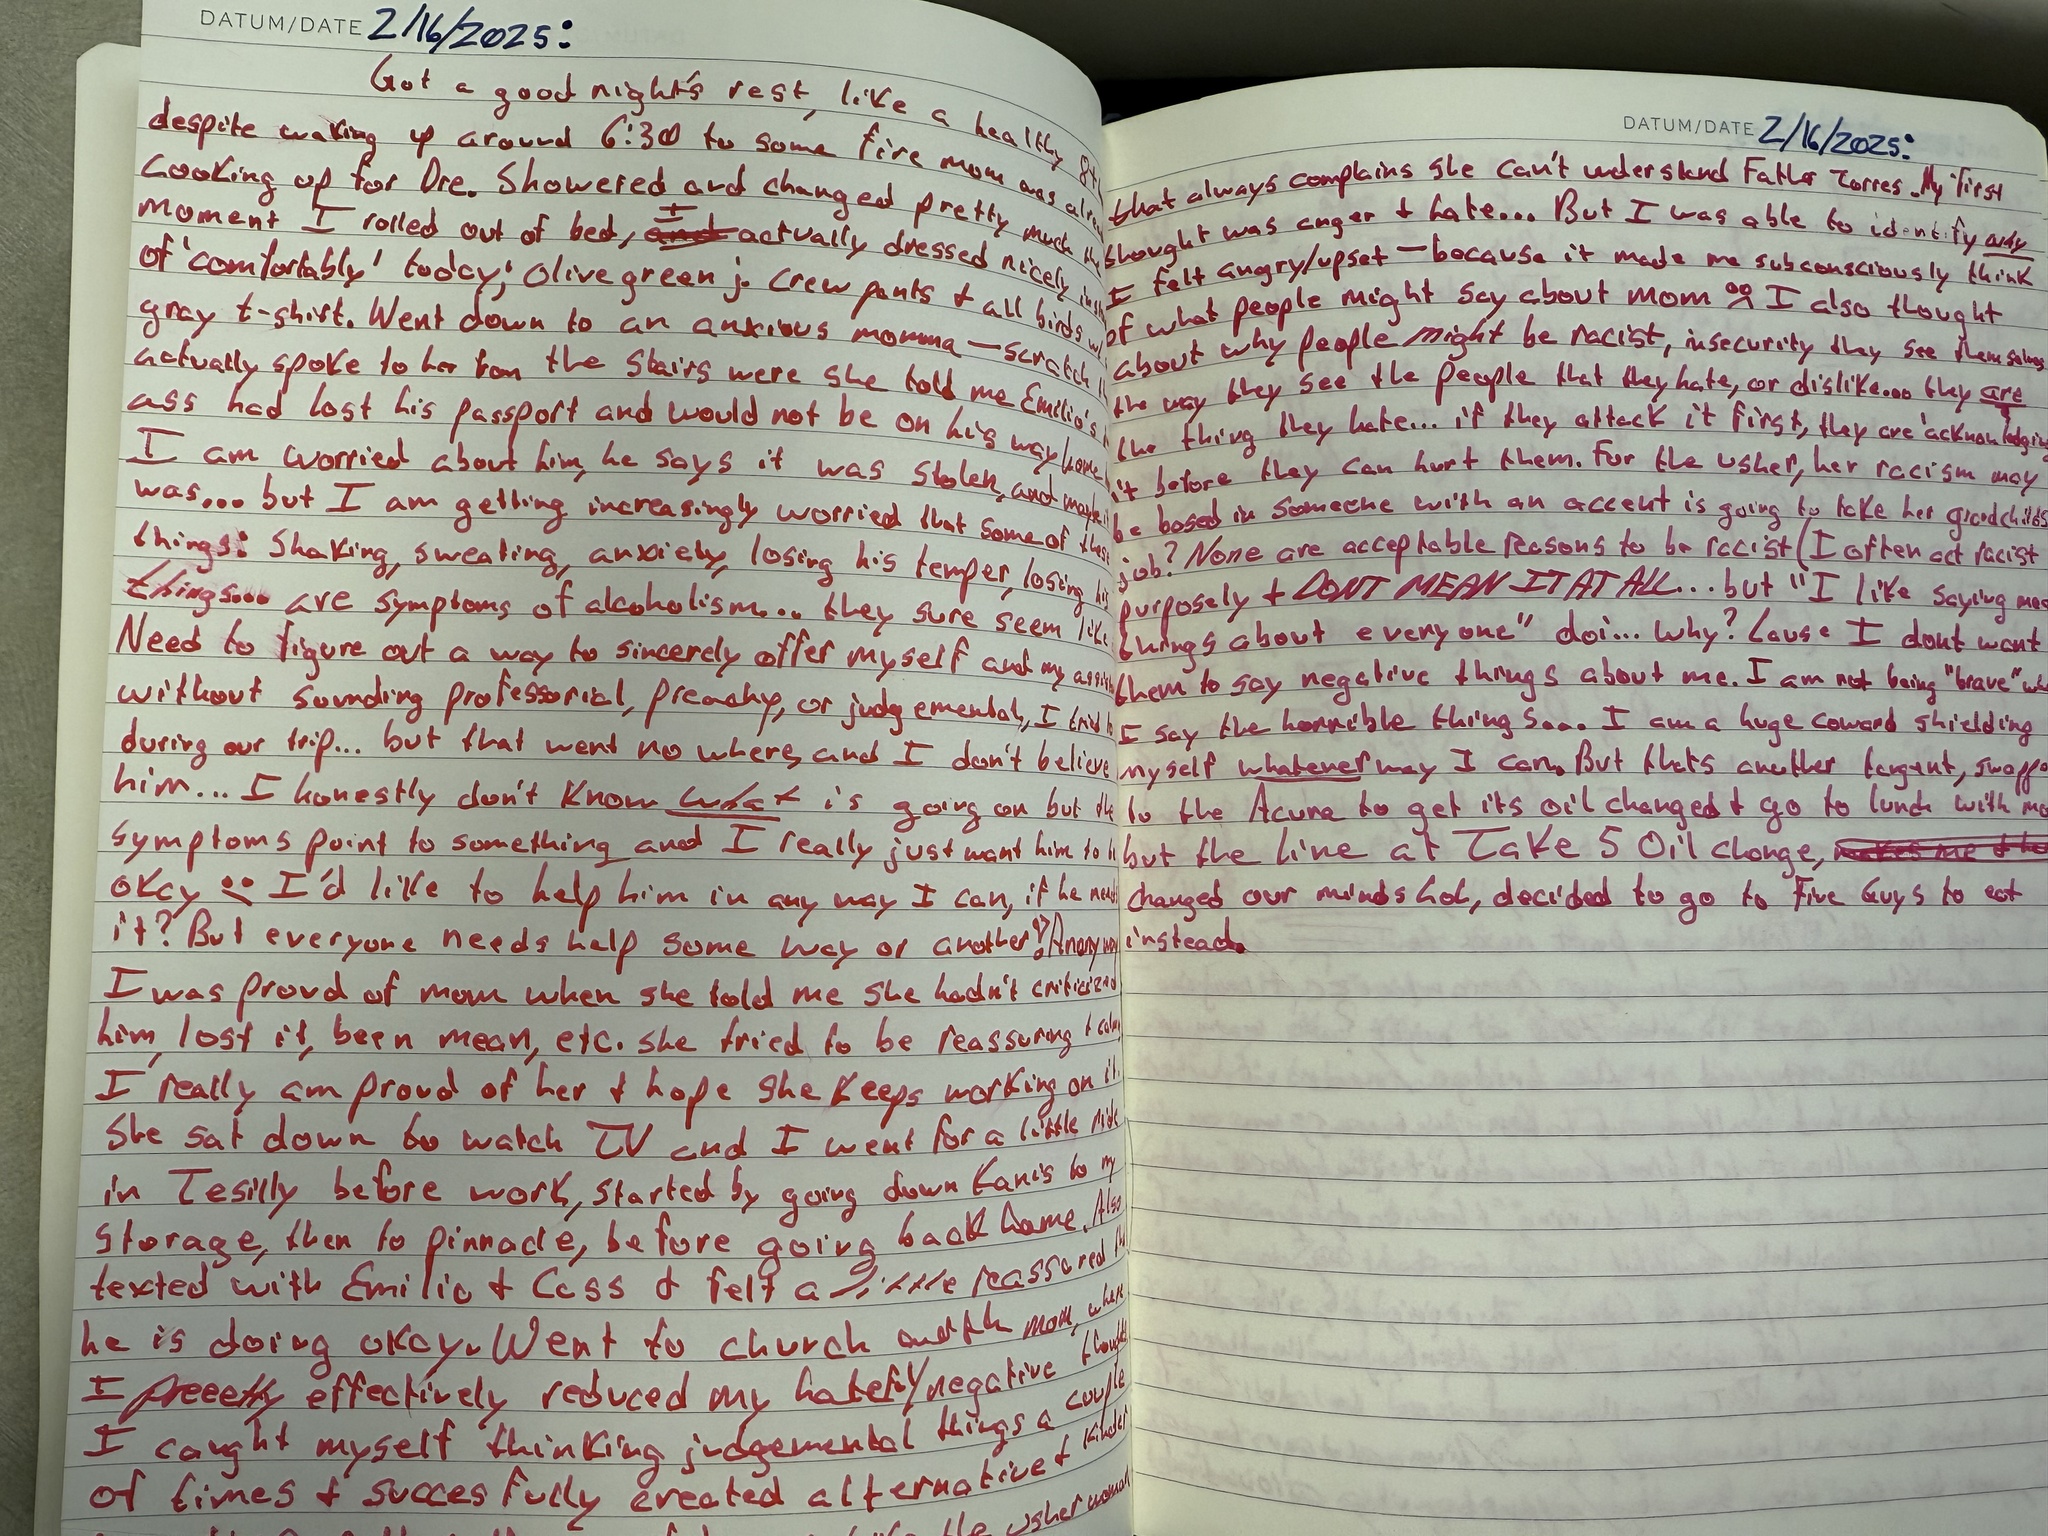 DATUM/DATE 2/16/2025:
Got a good night's rest, like a healthy
despite waking up around 6:30 to some fire mom was
cooking up for Dre. Showered and changed pretty much the
moment I rolled out of bed, and I actually dressed nicely
of 'comfortably' today; Olive green j. crew pants & all birds
gray t-shirt. Went down to an anxious momma — scratch
actually spoke to her from the stairs were she told me Emilio's
ass had lost his passport and would not be on his way home
I am worried about him, he says it was stolen, and maybe it
was... but I am getting increasingly worried that some of these
things: Shaking, sweating, anxiety, losing his temper, losing his
things... are symptoms of alcoholism... they sure seem like
Need to figure out a way to sincerely offer myself and my
without sounding professorial, preachy, or judgemental, I tried to
during our trip... but that went no where, and I don't believe
him... I honestly don't know what is going on but the
symptoms point to something and I really just want him to
okay I'd like to help him in any way I can, if he needs
it? But everyone needs help some way or another!?
I was proud of mom when she told me she hadn't criticized
him, lost it, been mean, etc. she tried to be reassuring &
I really am proud of her & hope she keeps working on it.
She sat down to watch TV and I went for a little ride
in Tesilly before work, started by going down Kanis to my
storage, then to pinnacle, before going back home. Also
texted with Emilio & Cass & felt a little reassured
he is doing okay. Went to church mom, where
I effectively reduced my hateful/negative thoughts
I caught myself thinking judgemental things a couple
of times & succesfully created alternative & kinder
the usher woman
DATUM/DATE 2/16/2025:
that always complains she can't understand Father Torres. My first
thought was anger & hate... But I was able to identify why
I felt angry/upset — because it made me subconsciously think
of what people might say about mom I also thought
about why people might be racist, insecurity they see themselves
the way they see the people that they hate, or dislike... they are
the thing they hate... if they attack it first, they are 'acknowledging
it before they can hurt them. For the usher, her racism may
be based in someone with an accent is going to take her grandchilds
job? None are acceptable reasons to be racist (I often act racist
purposely & DONT MEAN IT AT ALL... but "I like saying mean
things about everyone" doi... why? Cause I dont want
them to say negative things about me. I am not being "brave"
I say the horrible things... I am a huge coward shielding
myself whatever way I can. But thats another tangent,
to the Acura to get its oil changed & go to lunch with
but the line at Take 5 Oil change,
changed our minds lol, decided to go to Five Guys to eat
instead.